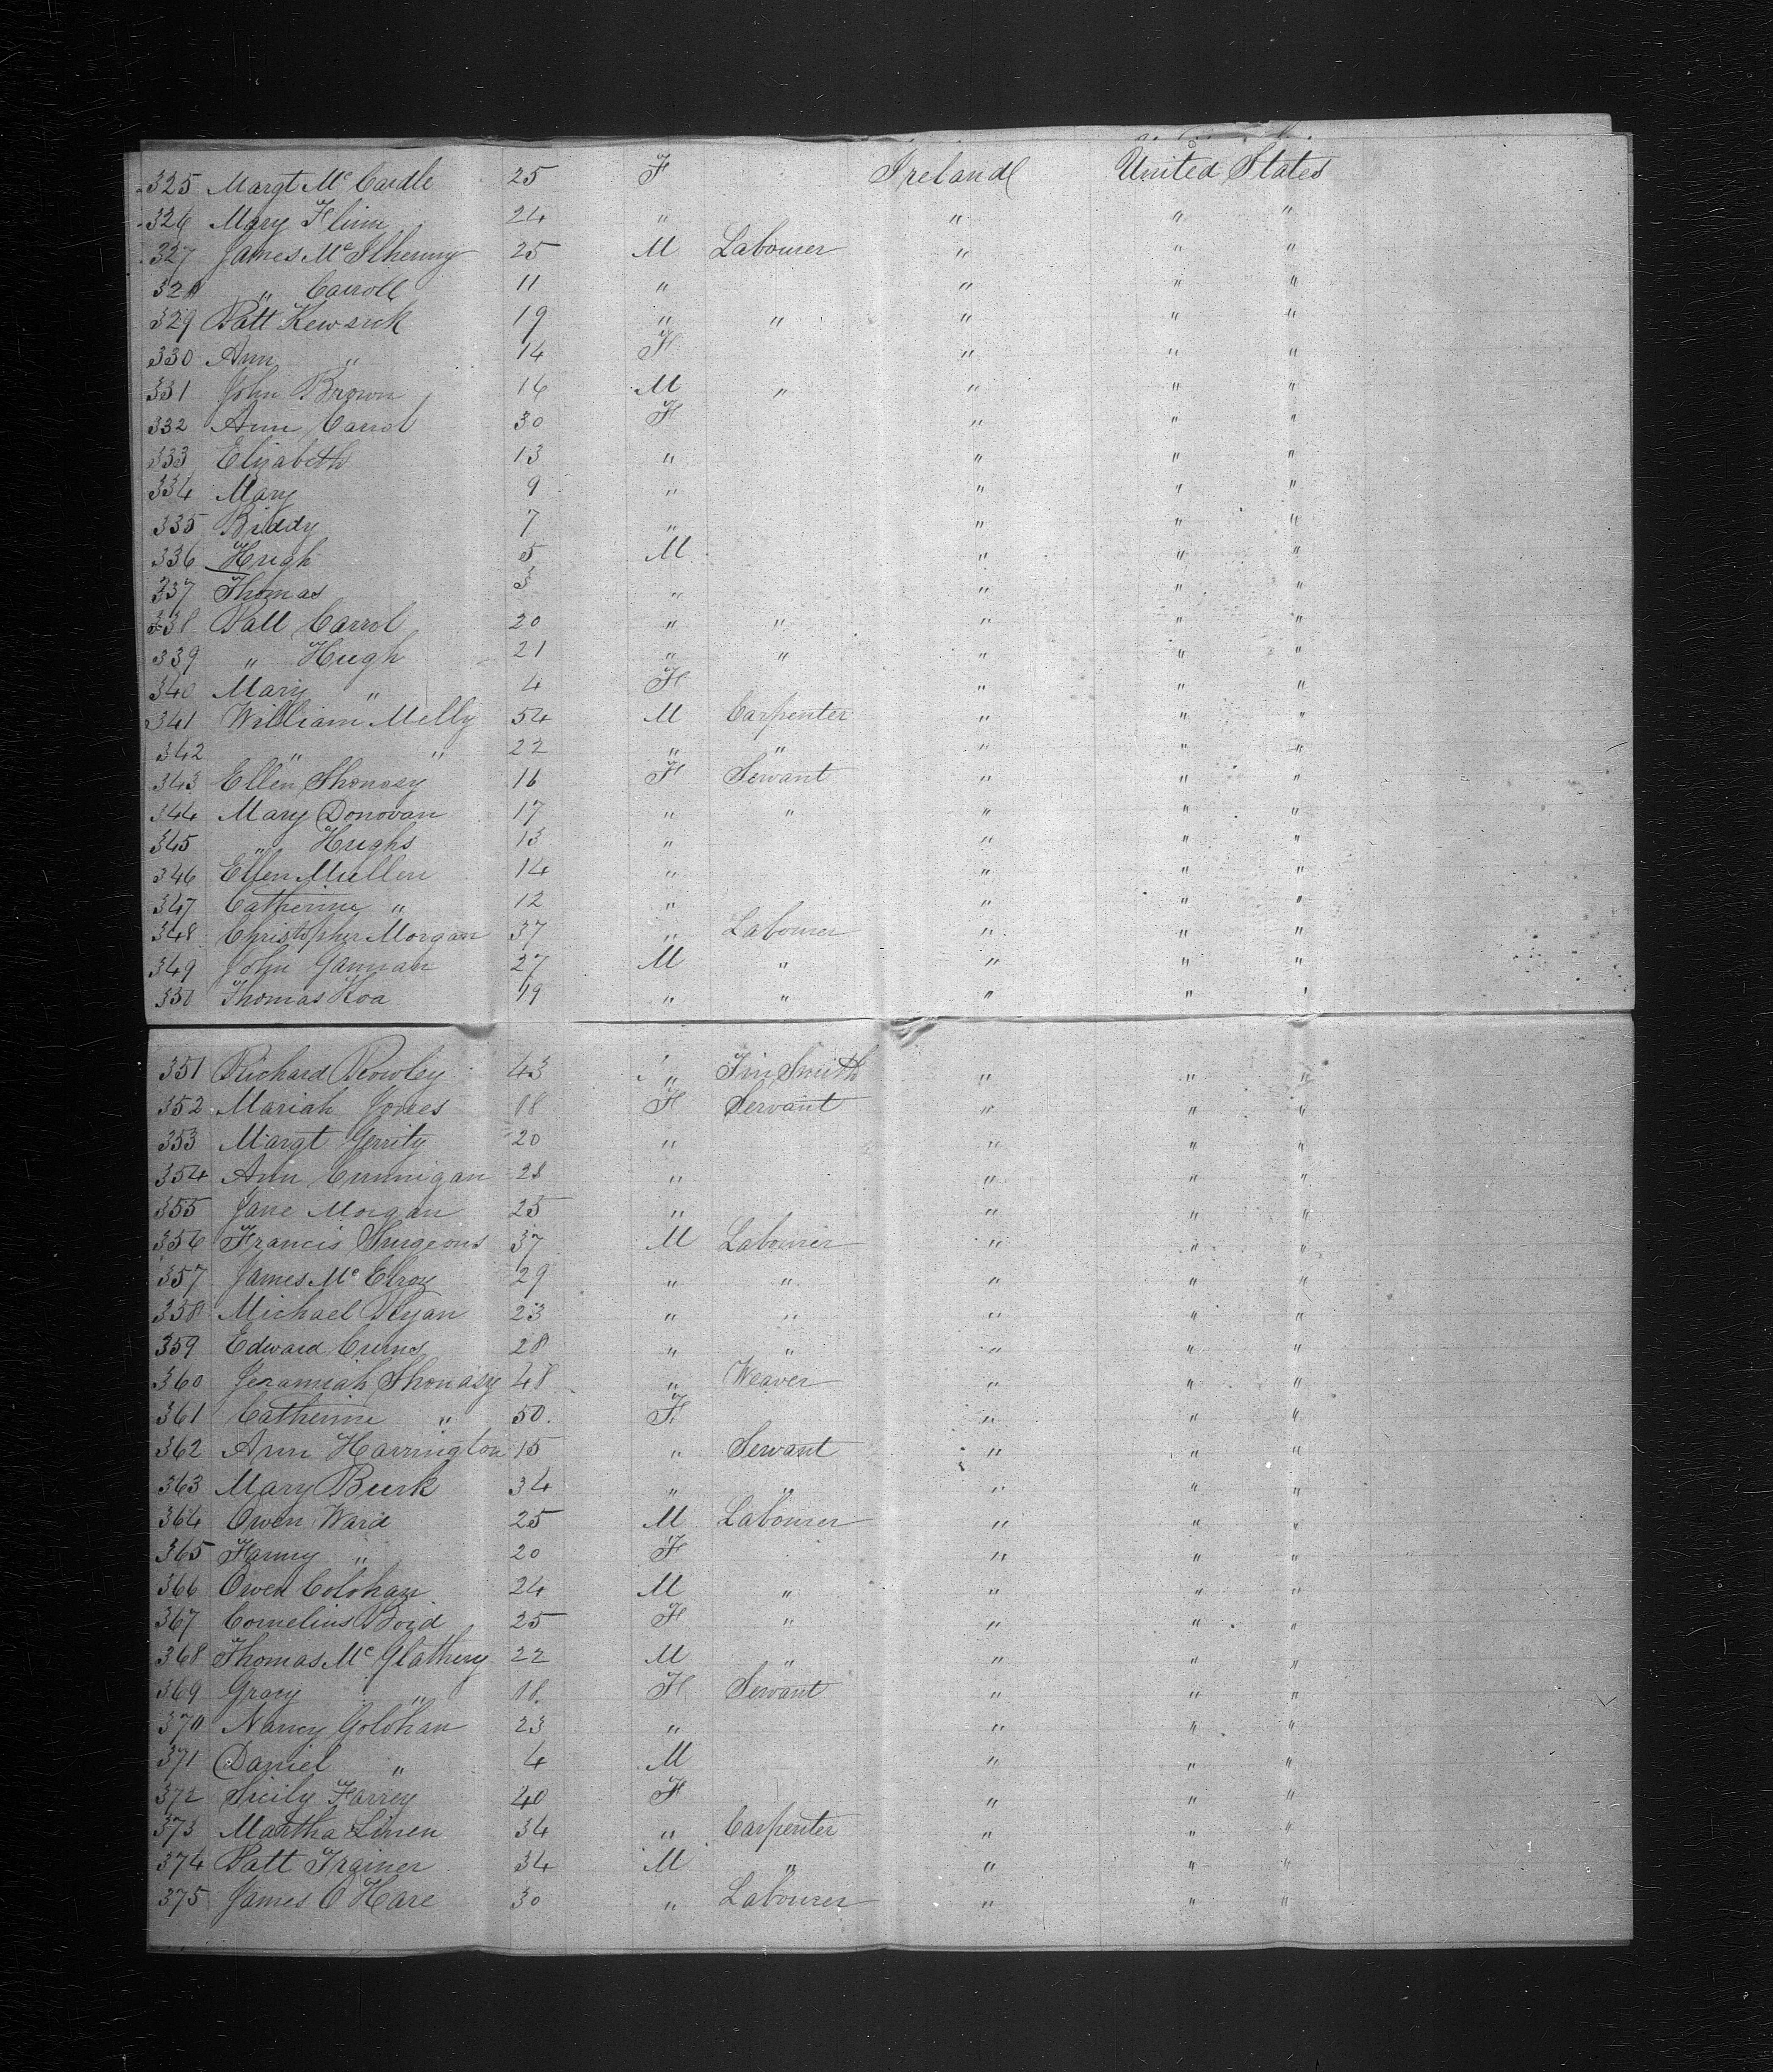 325 Margt Mc Cardle 25 F Ireland United States
326 Mary Flinn 24 " " " "
327 James Mc Ilhenny 25 M Labourer " " "
328 " Carroll 11 " " " "
329 Patt Kewsick 19 " " " " "
330 Ann " 14 F " " "
331 John Brown 16 M " " " "
332 Ann Carrol 30 F " " "
333 Elizabeth 13 " " " "
334 Mary 9 " " " "
335 Biddy 7 " " " "
336 Hugh 5 M " " "
337 Thomas 3 " " " "
338 Patt Carrol 20 " " " " "
339 " Hugh 21 " " " " "
340 Mary " 4 F " " "
341 William Melly 54 M Carpenter " " "
342 " " 22 " " " " "
343 Ellen Shonasy 16 F Servant " " "
344 Mary Donovan 17 " " " " "
345 " Hughs 13 " " " "
346 Ellen Mullen 14 " " " "
347 Catherine " 12 " " " "
348 Christopher Morgan 37 " Labourer " " "
349 John Gannan 27 M " " " "
350 Thomas Hoa 19 " " " " "
351 Richard Rowley 43 " Tin Smith " " "
352 Mariah Jones 18 F Servant " " "
353 Margt Gerrity 20 " " " "
354 Ann Cunnigan 28 " " " "
355 Jane Morgan 25 " " " "
356 Francis Surgeons 37 M Labourer " " "
357 James Mc Elroy 29 " " " " "
358 Michael Ryan 23 " " " " "
359 Edward Curns 28 " " " " "
360 Jeramiah Shonasy 48 " Weaver " " "
361 Catherine " 50 F " " "
362 Ann Harrington 15 " Servant " " "
363 Mary Burk 34 " " " " "
364 Owen Ward 25 M Labourer " " "
365 Fanny " 20 F " " "
366 Owen Colohan 24 M " " " "
367 Cornelius Boyd 25 F " " " "
368 Thomas Mc Glathery 22 M " " " "
369 Gracy " 18 F Servant " " "
370 Nancy Golohan 23 " " " "
371 Daniel " 4 M " " "
372 Sicily Farrey 40 F " " "
373 Martha Linen 34 " Carpenter " " "
374 Patt Trainer 34 M " " " "
375 James O Hare 30 " Labourer " " "